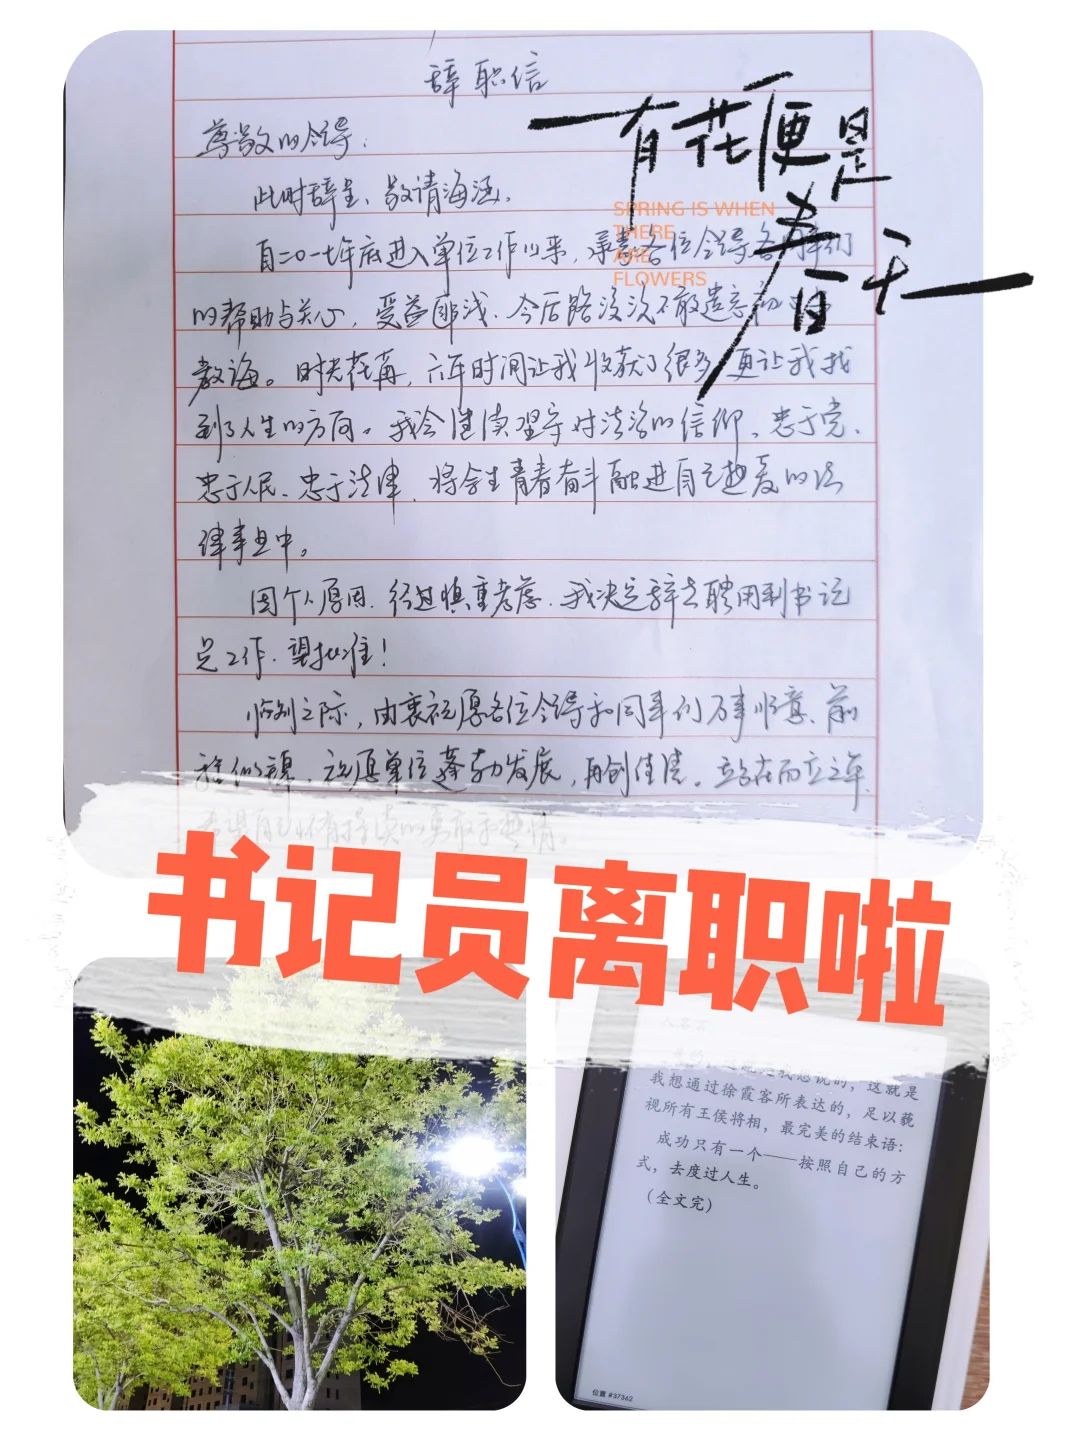 辞职信
尊敬的领导：
此时辞呈、敬请海涵。
自二〇一七年底进入单位工作以来，承蒙各位领导各同事们
的帮助与关心，受益匪浅．今后路漫漫不敢遗忘
教诲。时光荏苒，六年时间让我收获了很多，更让我找
到了人生的方向。我会继续坚守对法治的信仰、忠于党、
忠于人民、忠于法律，将余生青春奋斗融进自己热爱的法
律事业中。
因个人原因．经过慎重考虑．我决定辞去聘用制书记
员工作．望批准！
临别之际，由衷祝愿各位领导和同事们万事顺意、前
程似锦．祝愿单位蓬勃发展，再创佳绩。站在而立之年
希望自己怀有持续的勇敢和热情。
有花便是
春天
SPRING IS WHEN
THERE
ARE
FLOWERS
书记员离职啦
我想说的，这就是
我想通过徐霞客所表达的，足以藐
视所有王侯将相，最完美的结束语：
成功只有一个——按照自己的方
式，去度过人生。
（全文完）
位置 #37362